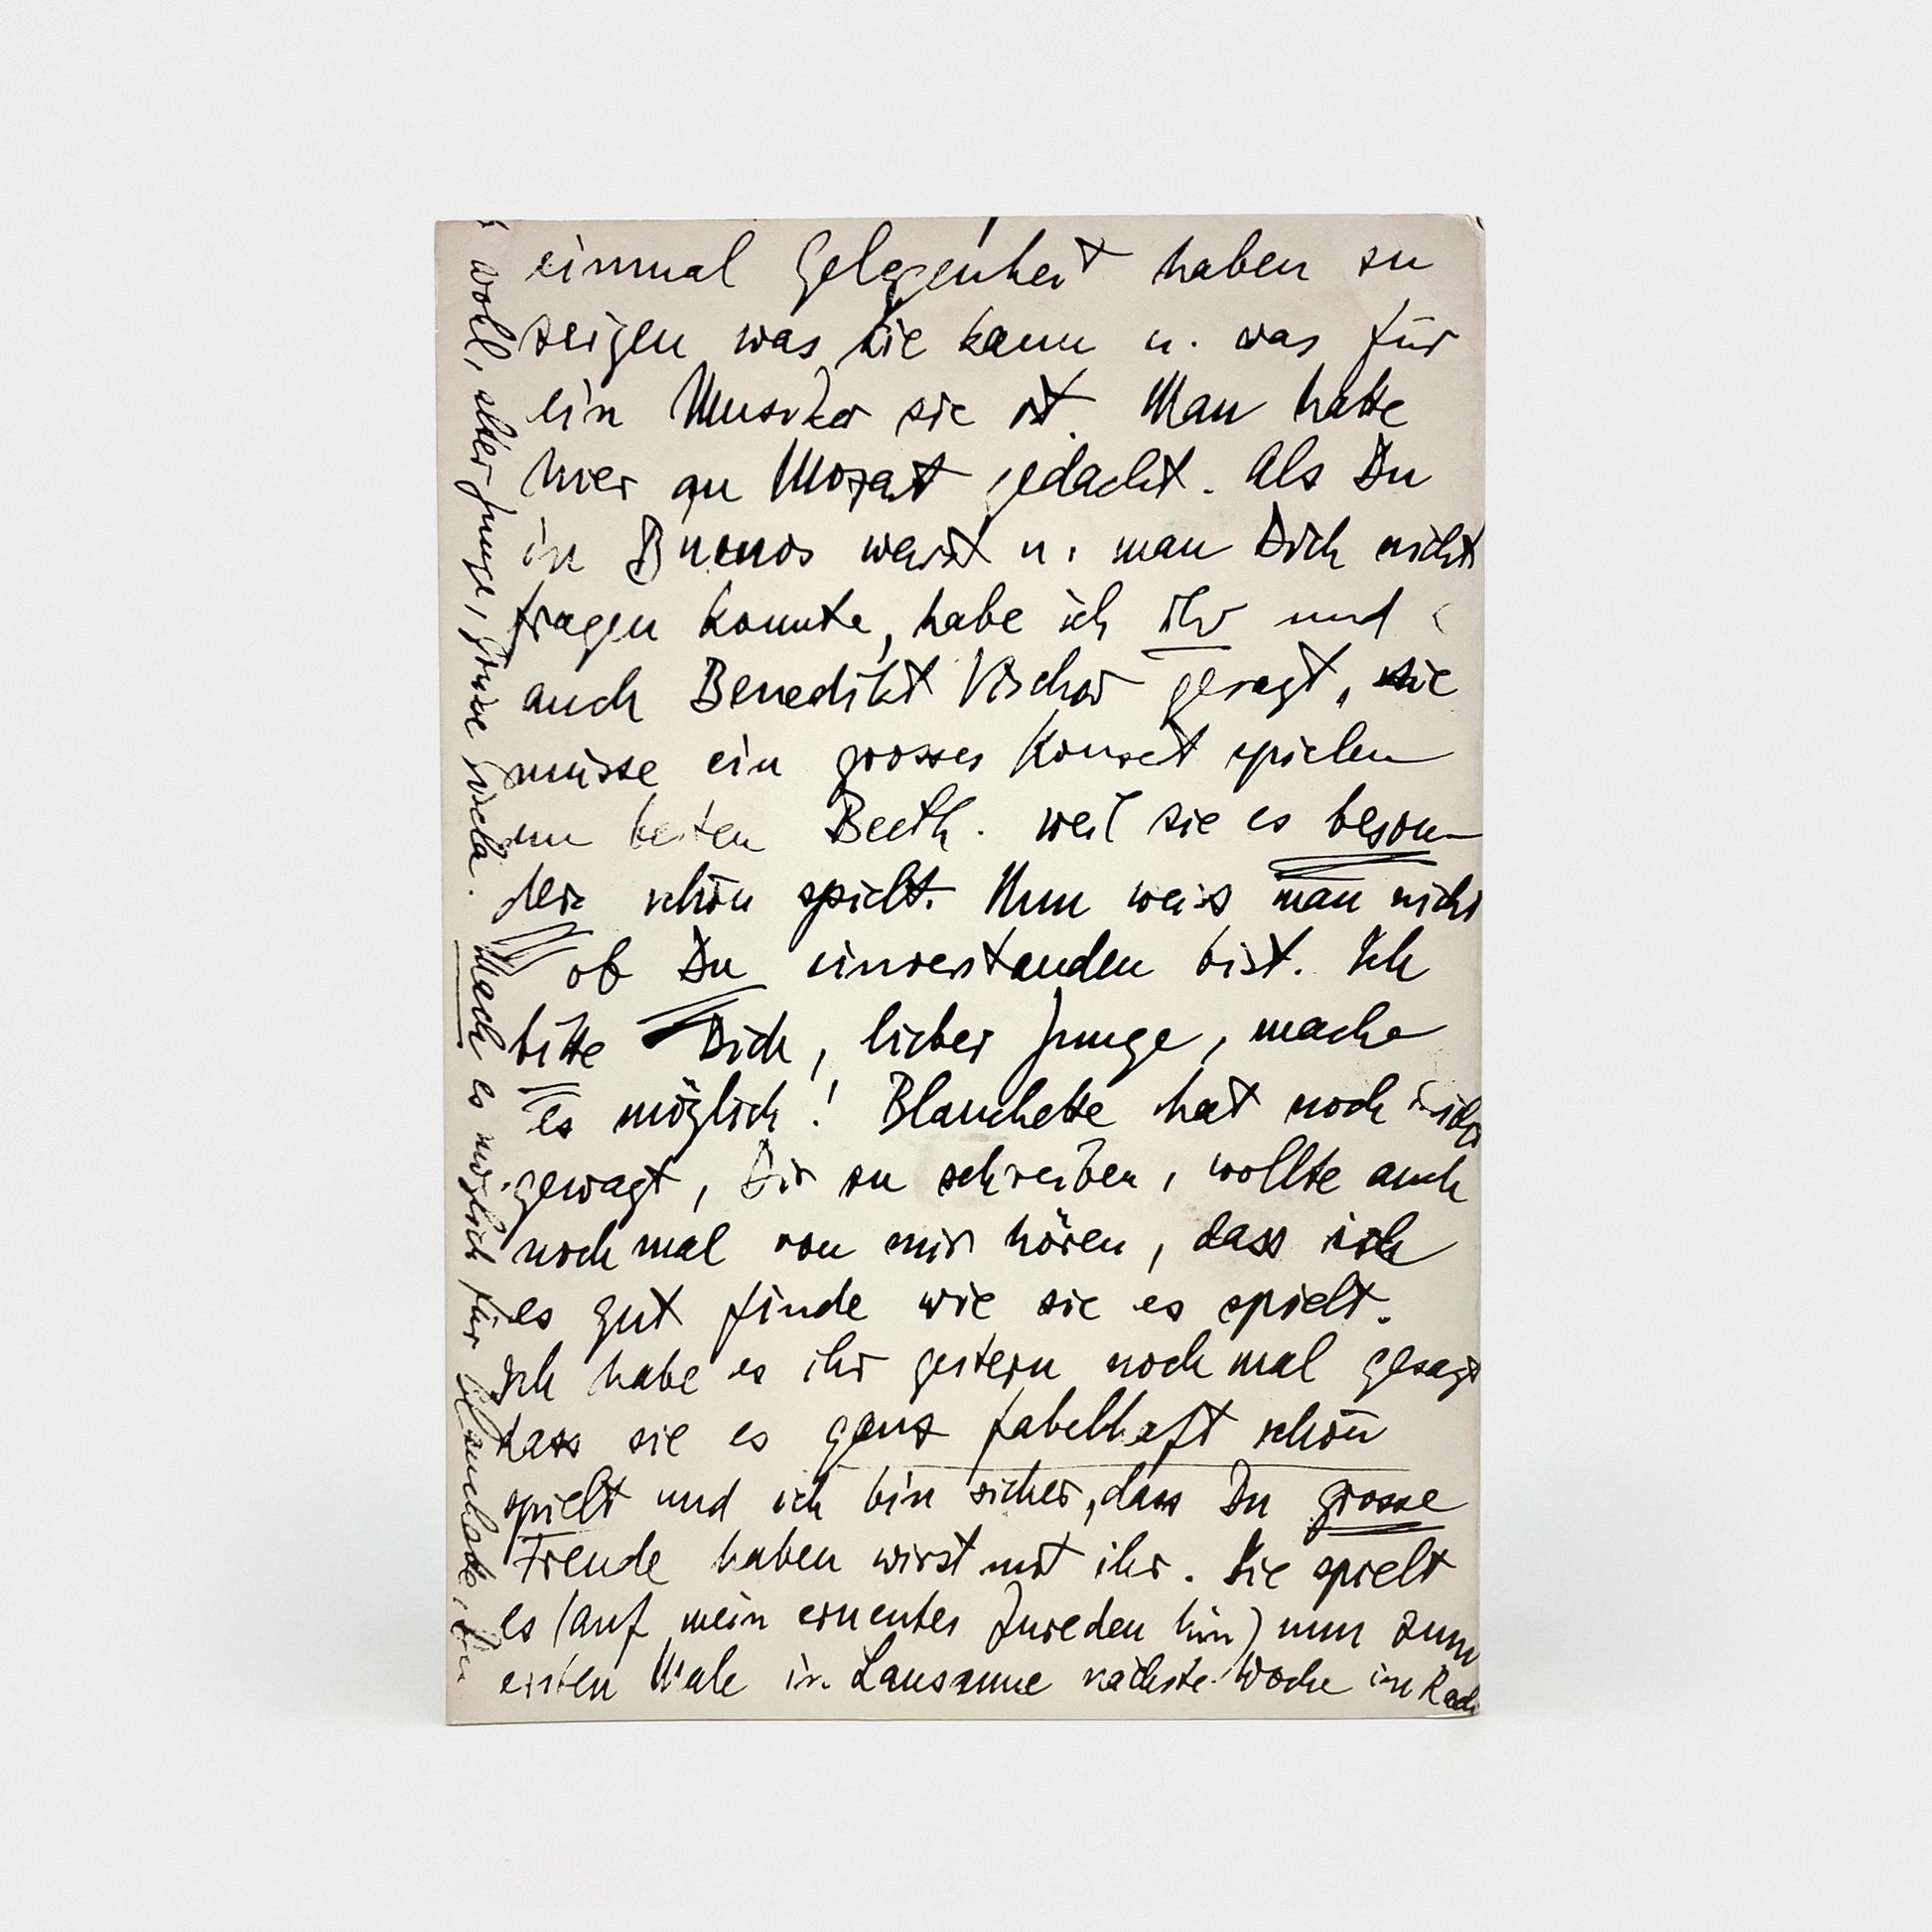 einmal Gelegenheit haben zu
zeigen was sie kann u. was für
ein Musiker sie ist. Man hatte
hier an Mozart gedacht. Als Du
in Buenos warst u. man Dich nicht
fragen konnte, habe ich ihr und
auch Benedikt Vischer gesagt, sie
müsse ein grosses Konzert spielen
am besten Beeth. weil sie es beson-
ders schön spielt. Nun weiss man nicht
ob Du einverstanden bist. Ich
bitte Dich, lieber Junge, mache
es möglich! Blanchette hat noch nicht
gewagt, Dir zu schreiben, wollte auch
noch mal von mir hören, dass ich
es gut finde wie sie es spielt.
Ich habe es ihr gestern noch mal gesagt
dass sie es ganz fabelhaft schön
spielt und ich bin sicher, dass Du grosse
Freude haben wirst mit ihr. Sie spielt
es (auf mein erneutes Zureden hin) nun zum
ersten Male in Lausanne nächste Woche im Radi
wohl, alter Junge, Mach es möglich für Blanchette,